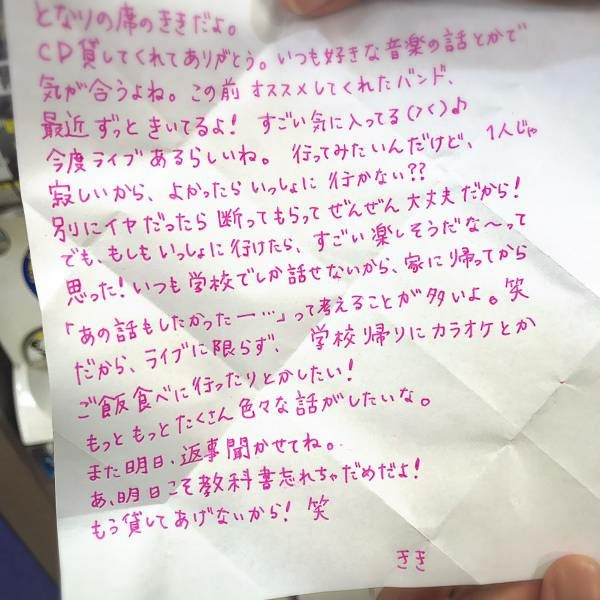 となりの席のききだよ。
CD貸してくれてありがとう。いつも好きな音楽の話とかで
気が合うよね。この前オススメしてくれたバンド、
最近ずっときいてるよ! すごい気に入ってる(>く)♪
今度ライブあるらしいね。行ってみたいんだけど、1人じゃ
寂しいから、よかったらいっしょに行かない??
別にイヤだったら断ってもらってぜんぜん大丈夫だから!
でも、もしもいっしょに行けたら、すごい楽しそうだな〜って
思った!いつも学校でしか話せないから、家に帰ってから
「あの話もしたかったー…」って考えることが多いよ。笑
だから、ライブに限らず、学校帰りにカラオケとか
ご飯食べに行ったりとかしたい!
もっともっとたくさん色々な話がしたいな。
また明日、返事聞かせてね。
あ、明日こそ教科書忘れちゃだめだよ!
もう貸してあげないから! 笑
きき